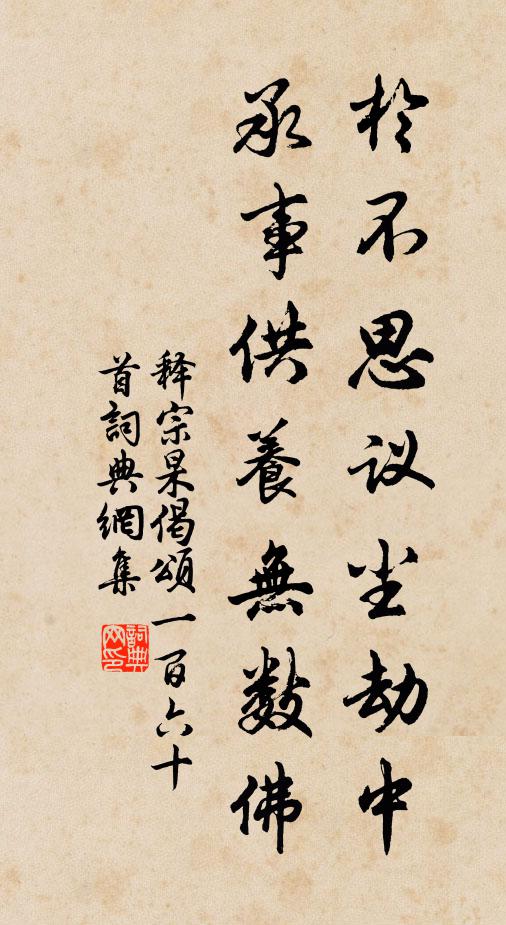 於不思议尘劫中
承事供養無數佛
释宗杲偈頌一百六十
首詞典網集
詞典网印